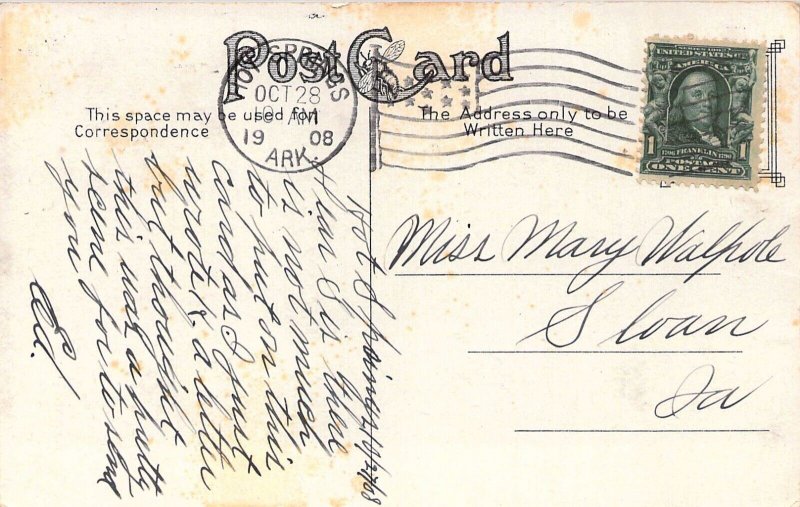 Post Card
This space may be used for
Correspondence
The Address only to be
Written Here
HOT SPRINGS
OCT 28
AM
1908
ARK.
SERIES 1902
UNITED STATES OF
AMERICA
1 1
1706 FRANKLIN 1790
POSTAGE
ONE CENT
Miss Mary Walpole
Sloan
Ia
Hot Springs
Dear Sis there
is not much
to put on this
card as I just
wrote a letter
but thought
this was a pretty
scene for to send
you
Ed.